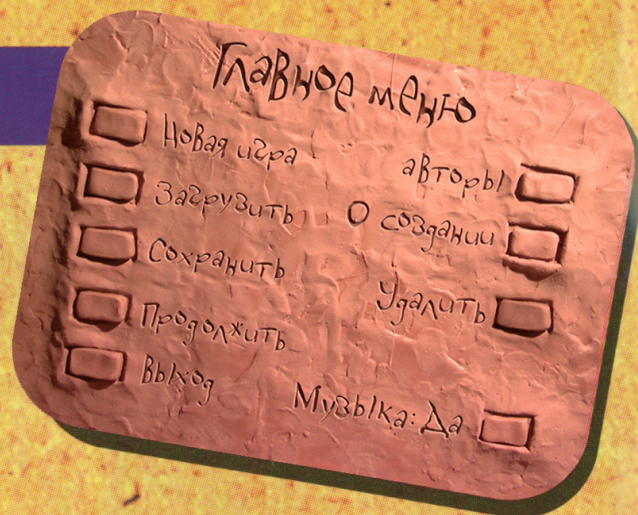 Главное меню
Новая игра
Загрузить
Сохранить
Продолжить
Выход
авторы
О создании
Удалить
Музыка: Да